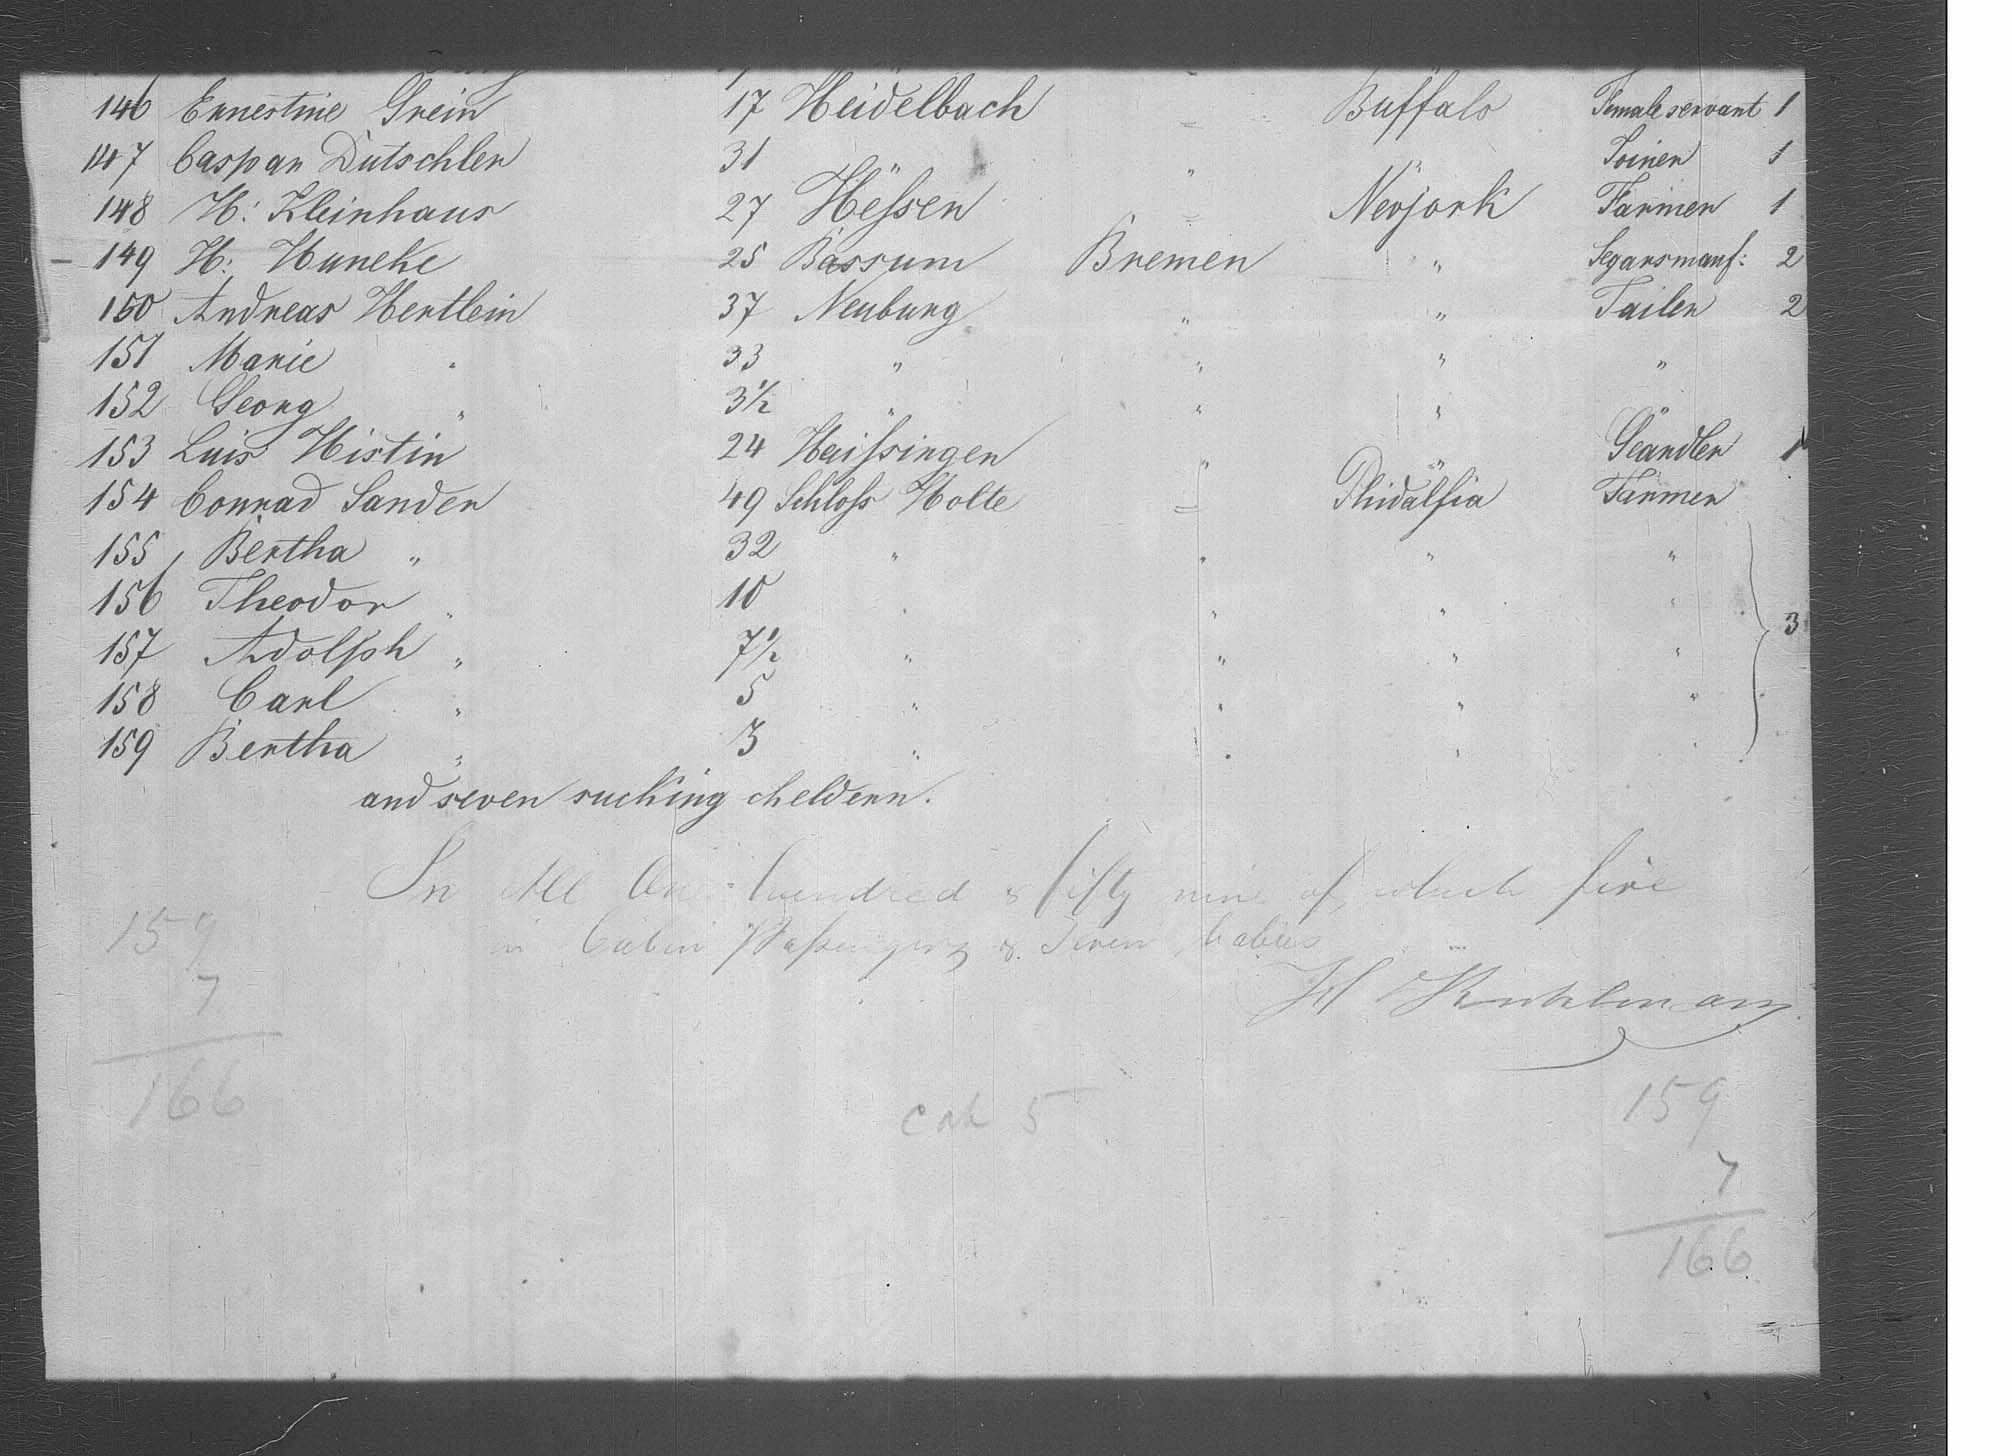 146 Ernestine Grein 17 Heidelbach " Buffalo Female servant 1
147 Caspar Dutschler 31 " " " Joiner 1
148 H: Kleinhaus 27 Heßen " Nevjork Farmer 1
149 H: Huneke 25 Bassum Bremen " Segarsmanf: 2
150 Andreas Hertlein 37 Neuburg " " Tailer 2
151 Marie " 33 " " " "
152 Georg " 3½ " " " "
153 Luis Histin 24 Haißingen " " Geandler 1
154 Conrad Sander 49 Schloß Holte " Phidalfia Farmer
155 Bertha " 32 " " " "
156 Theodor " 10 " " " "
157 Adolph " 7½ " " " " 3
158 Carl " 5 " " " "
159 Bertha " 3 " " " "
and seven sucking cheldern.
In All One hundred & fifty nine of which five
in Cabin Passengers & Seven babies
H
159
7
166
cab 5
159
7
166